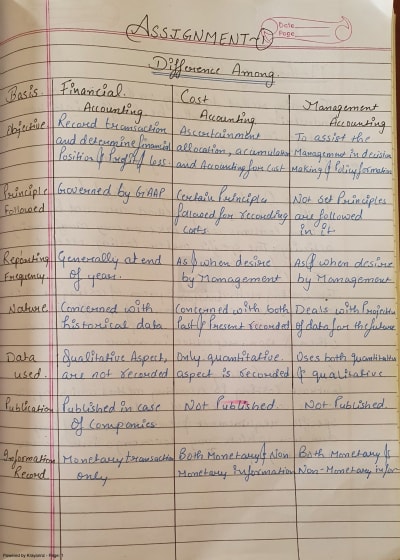 ASSIGNMENT-1
Date
Page
Difference Among
Basis Financial Accounting Cost Accounting Management Accounting
Objective Record transaction Ascertainment To assist the
and determine financial allocation, accumulation Management in decision
Position & Profit & loss and Accounting for Cost Making & Policy formation
Principle Governed by GAAP Certain Principle Not set Principles
Followed followed for recording are followed
costs in it
Reporting Generally at end As & when desire As & when desire
Frequency of year. by Management by Management
Nature Concerned with Concerned with both Deals with Projection
historical data Past & Present recorded of data for the future
Data Qualitative Aspect, Only quantitative Uses both quantitative
used. are not recorded aspect is recorded & qualitative
Publication Published in case Not Published. Not Published.
of Companies
Information Monetary transaction Both Monetary & Non Both Monetary &
Record only Monetary information Non-Monetary infor
Powered by Kraysnot - Page